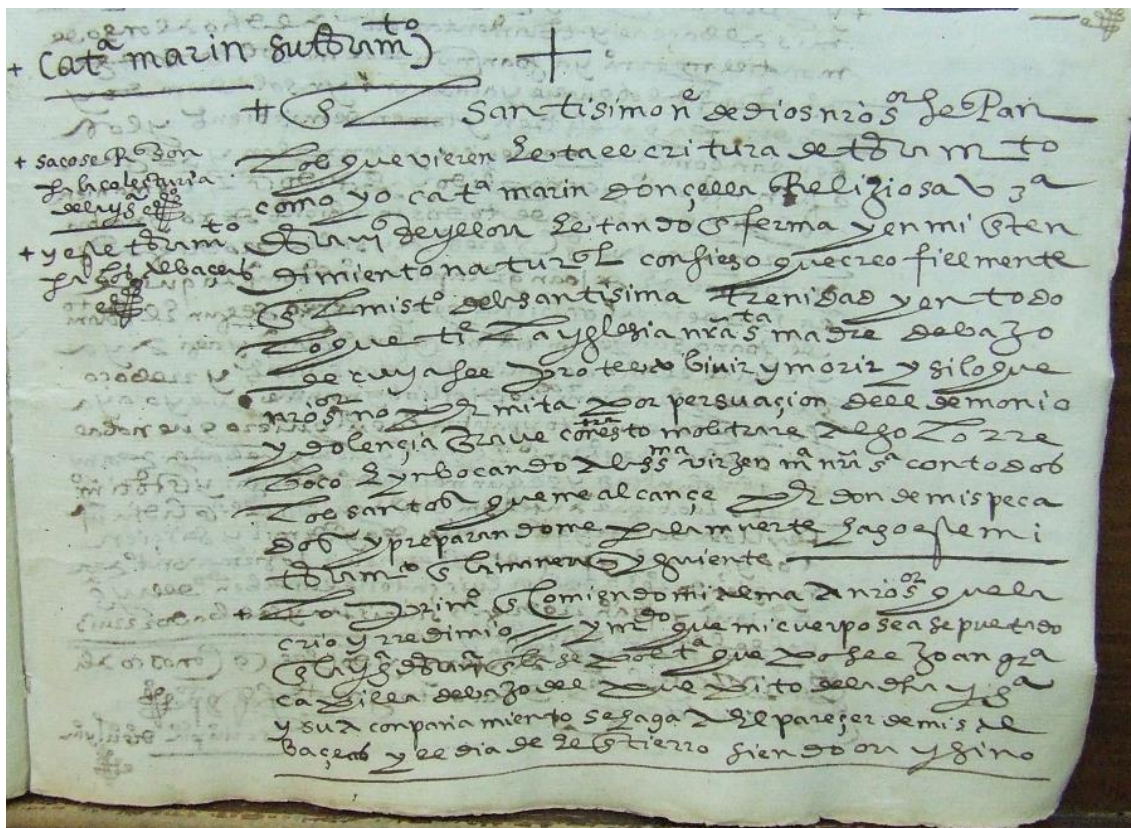 Catª marin su testamto
+
En El santisimo ne de dios nro sor sepan
los que vieren esta escritura de testamto
como yo catª marin donçella Relijiosa vzª
desta vª de yllora estando enferma y en mi enten
dimiento natural confieso que creo fielmente
El misto de la santisima trenidad y en todo
lo que tiene la yglesia nra sta madre debaxo
de cuya fee protesto bivir y morir y si lo que
nro sor no permita por persuaçion del demonio
y dolençia grave contra esto mostrare algo lo rre
boco E ynbocando a la ssma virjen mª nra sª con todos
los santos que me alcançe perdon de mis peca
dos y preparandome para la muerte hago este mi
testamto En la manera siguiente
+ Lo primo Encomiendo mi alma a nro sor que la
crio y rredimio y mdo que mi cuerpo sea sepultado
En la ygª desta vª En la sepoltª que posee joan grª
capilla debaxo del pulpito de la dha ygª
y su aconpañamiento se haga a el pareçer de mis al
baçeas y el dia de el Entierro siendo ora y sino
+ sacose Razon
pª la colecturia
de la ygª
+ y este testamto
pª los albaçeas